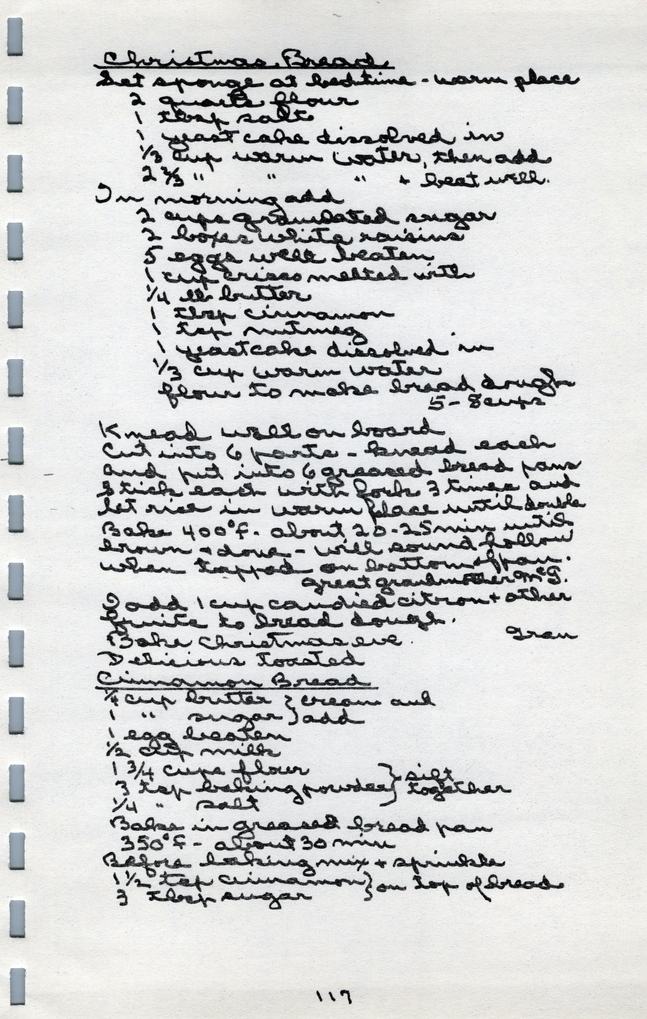 Christmas Bread
Set sponge at bedtime - warm place
2 quarts flour
1 tbsp salt
1 yeast cake dissolved in
1/3 cup warm water, then add
2 2/3 " " " + beat well.
In morning add
2 cups granulated sugar
2 boxes white raisins
5 eggs well beaten
1 cup crisco melted with
1/4 lb butter
1 tbsp cinnamon
1 tsp nutmeg
1 yeastcake dissolved in
1/3 cup warm water
flour to make bread dough
5-8 cups
Knead well on board
Cut into 6 parts - knead each
and put into 6 greased bread pans
Stick each with fork 3 times and
let rise in warm place until double
Bake 400°f. about 20-25 min until
brown + done - will sound hollow
when tapped on bottom of pan.
great grandmother McG.
I add 1 cup candied citron + other
fruits to bread dough.
Gran
Bake Christmas eve.
Delicious toasted
Cinnamon Bread
1/4 cup butter } cream and
1 " sugar } add
1 egg beaten
1/2 cup milk
1 3/4 cups flour } sift
3 tsp baking powder } together
1/4 " salt
Bake in greased bread pan
350°f - about 30 min
Before baking mix + sprinkle
1 1/2 tsp cinnamon } on top of bread
3 tbsp sugar
117